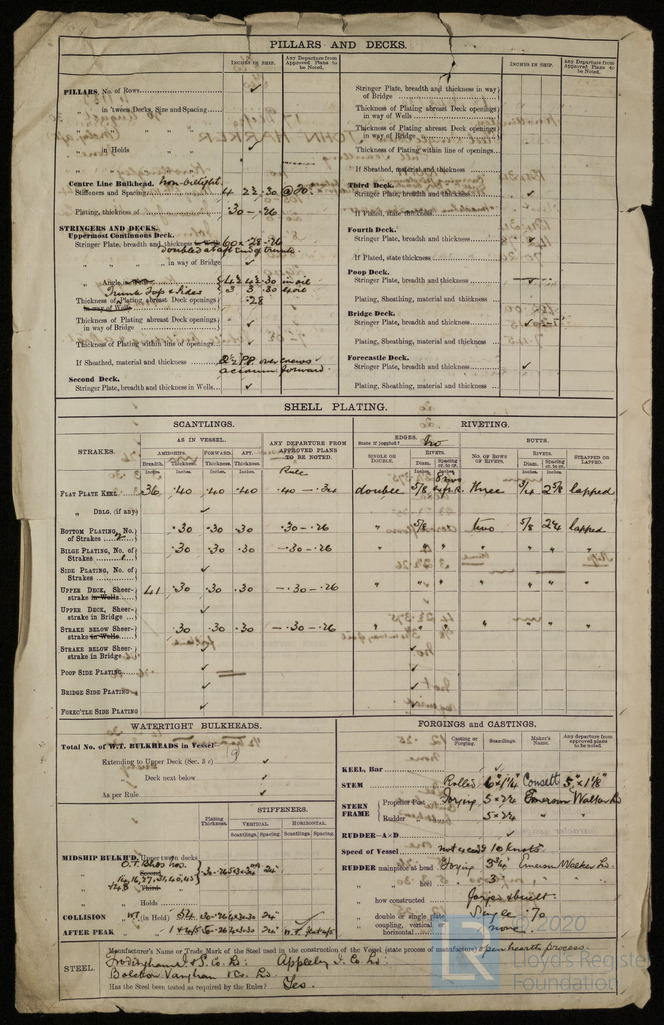 PILLARS AND DECKS.
INCHES IN SHIP.
Any Departure from Approved Plans to be Noted.
PILLARS, No. of Rows
in 'tween Decks, Size and Spacing
" " "
" " "
in Holds " "
" " "
Centre Line Bulkhead. Non-oiltight.
Stiffeners and Spacing 4 2½ .30 @ 30"
Plating, thickness of .30 - .26
STRINGERS AND DECKS.
Uppermost Continuous Deck.
Stringer Plate, breadth and thickness 60 × .28 - .26
doubled at aft end of trunk
" " " in way of Bridge
" Angle in Wells 4½ 4½ .30 in oil
Trunk Top & Sides 3 3 .30
Thickness of Plating abreast Deck openings in way of Wells .28
Thickness of Plating abreast Deck openings in way of Bridge
Thickness of Plating within line of openings
If Sheathed, material and thickness 2½ PP over crews
accomn forward.
Second Deck.
Stringer Plate, breadth and thickness in Wells
INCHES IN SHIP.
Any Departure from Approved Plans to be Noted.
Stringer Plate, breadth and thickness in way of Bridge
Thickness of Plating abreast Deck openings in way of Wells
Thickness of Plating abreast Deck openings in way of Bridge
Thickness of Plating within line of openings
If Sheathed, material and thickness
Third Deck.
Stringer Plate, breadth and thickness
If Plated, state thickness
Fourth Deck.
Stringer Plate, breadth and thickness
If Plated, state thickness
Poop Deck.
Stringer Plate, breadth and thickness
Plating, Sheathing, material and thickness
Bridge Deck.
Stringer Plate, breadth and thickness
Plating, Sheathing, material and thickness
Forecastle Deck.
Stringer Plate, breadth and thickness
Plating, Sheathing, material and thickness
SHELL PLATING.
SCANTLINGS.
RIVETING.
STRAKES.
AS IN VESSEL.
ANY DEPARTURE FROM APPROVED PLANS TO BE NOTED.
EDGES.
State if joggled? No
BUTTS.
AMIDSHIPS.
FORWARD.
AFT.
SINGLE OR DOUBLE.
RIVETS.
NO. OF ROWS OF RIVETS.
RIVETS.
STRAPPED OR LAPPED.
Breadth. Thickness. Thickness. Thickness.
Diam. Spacing cr. to cr.
Diam. Spacing cr. to cr.
Inches. Inches. Inches. Inches. Rule
FLAT PLATE KEEL 36 .40 .40 .40 .40 - .34 double 5/8 three 3/4 2 5/8 lapped
" DBLG. (if any)
BOTTOM PLATING, No. of Strakes 2 .30 .30 .30 .30 - .26 " 5/8 two 5/8 2¼ lapped
BILGE PLATING, No. of Strakes 1 .30 .30 .30 - .30 - .26 " " " " " " "
SIDE PLATING, No. of Strakes
UPPER DECK, Sheer-strake in Wells 41 .30 .30 .30 - .30 - .26 " " " " " " "
UPPER DECK, Sheer-strake in Bridge
STRAKE BELOW Sheer-strake in Wells .30 .30 .30 - .30 - .26 " " " " " " "
STRAKE BELOW Sheer-strake in Bridge
POOP SIDE PLATING
BRIDGE SIDE PLATING
FOREC'TLE SIDE PLATING
WATERTIGHT BULKHEADS.
Total No. of W.T. BULKHEADS in Vessel 9
Extending to Upper Deck (Sec. 3 c)
Deck next below
As per Rule
Plating Thickness.
STIFFENERS.
VERTICAL
HORIZONTAL
Scantlings. Spacing. Scantlings. Spacing.
MIDSHIP BULKH'D, Upper tween decks
O.T. Bhds nos.
" " Second "
" " Third "
" " Holds
COLLISION " W.T. (in Hold)
AFTER PEAK "
FORGINGS and CASTINGS.
Casting or Forging.
Scantlings.
Maker's Name.
Any departure from approved plans to be noted.
KEEL, Bar
STEM Rolled 6" × 1¼" Consett 5" × 1⅛"
STERN FRAME Propeller Post Forging 5 × 2¼ Emerson Walker Ld
Rudder " " 5 × 2¼ " "
RUDDER—A×D
Speed of Vessel not exceedg 10 knots.
RUDDER mainpiece at head Forging 3¾ Emerson Walker Ld.
" " heel " 3" "
" how constructed Forged & built.
" double or single plate Single .70
" coupling, vertical or horizontal none
STEEL.
Manufacturer's Name or Trade Mark of the Steel used in the construction of the Vessel (state process of manufacture) open hearth process.
Frodingham I. & S. Co. Ld: Appleby I. Co Ld:
Bolckow Vaughan & Co. Ld.
Has the Steel been tested as required by the Rules? Yes.
© 2020
LR
Lloyd's Register
Foundation